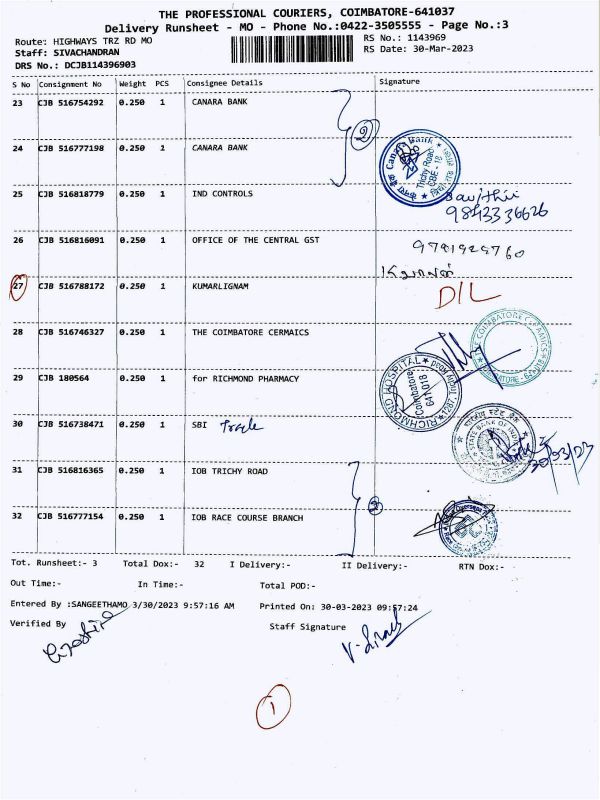 THE PROFESSIONAL COURIERS, COIMBATORE-641037
Delivery Runsheet - MO - Phone No.:0422-3505555 - Page No.:3
Route: HIGHWAYS TRZ RD MO
RS No.: 1143969
Staff: SIVACHANDRAN
RS Date: 30-Mar-2023
DRS No.: DCJB114396903
S No Consignment No Weight PCS Consignee Details Signature
23 CJB 516754292 0.250 1 CANARA BANK
2
24 CJB 516777198 0.250 1 CANARA BANK
Canara Bank
Trichy Road
CBE - 18
25 CJB 516818779 0.250 1 IND CONTROLS
9843336626
26 CJB 516816091 0.250 1 OFFICE OF THE CENTRAL GST
27 CJB 516788172 0.250 1 KUMARLIGNAM
D/L
28 CJB 516746327 0.250 1 THE COIMBATORE CERMAICS
29 CJB 180564 0.250 1 for RICHMOND PHARMACY
RICHMOND HOSPITAL
1287, Trichy Road
Coimbatore
641 018
30 CJB 516738471 0.250 1 SBI
STATE BANK OF INDIA
30/03/23
31 CJB 516816365 0.250 1 IOB TRICHY ROAD
2
32 CJB 516777154 0.250 1 IOB RACE COURSE BRANCH
Tot. Runsheet:- 3 Total Dox:- 32 I Delivery:- II Delivery:- RTN Dox:-
Out Time:- In Time:- Total POD:-
Entered By :SANGEETHAMO 3/30/2023 9:57:16 AM Printed On: 30-03-2023 09:57:24
Verified By Staff Signature
1